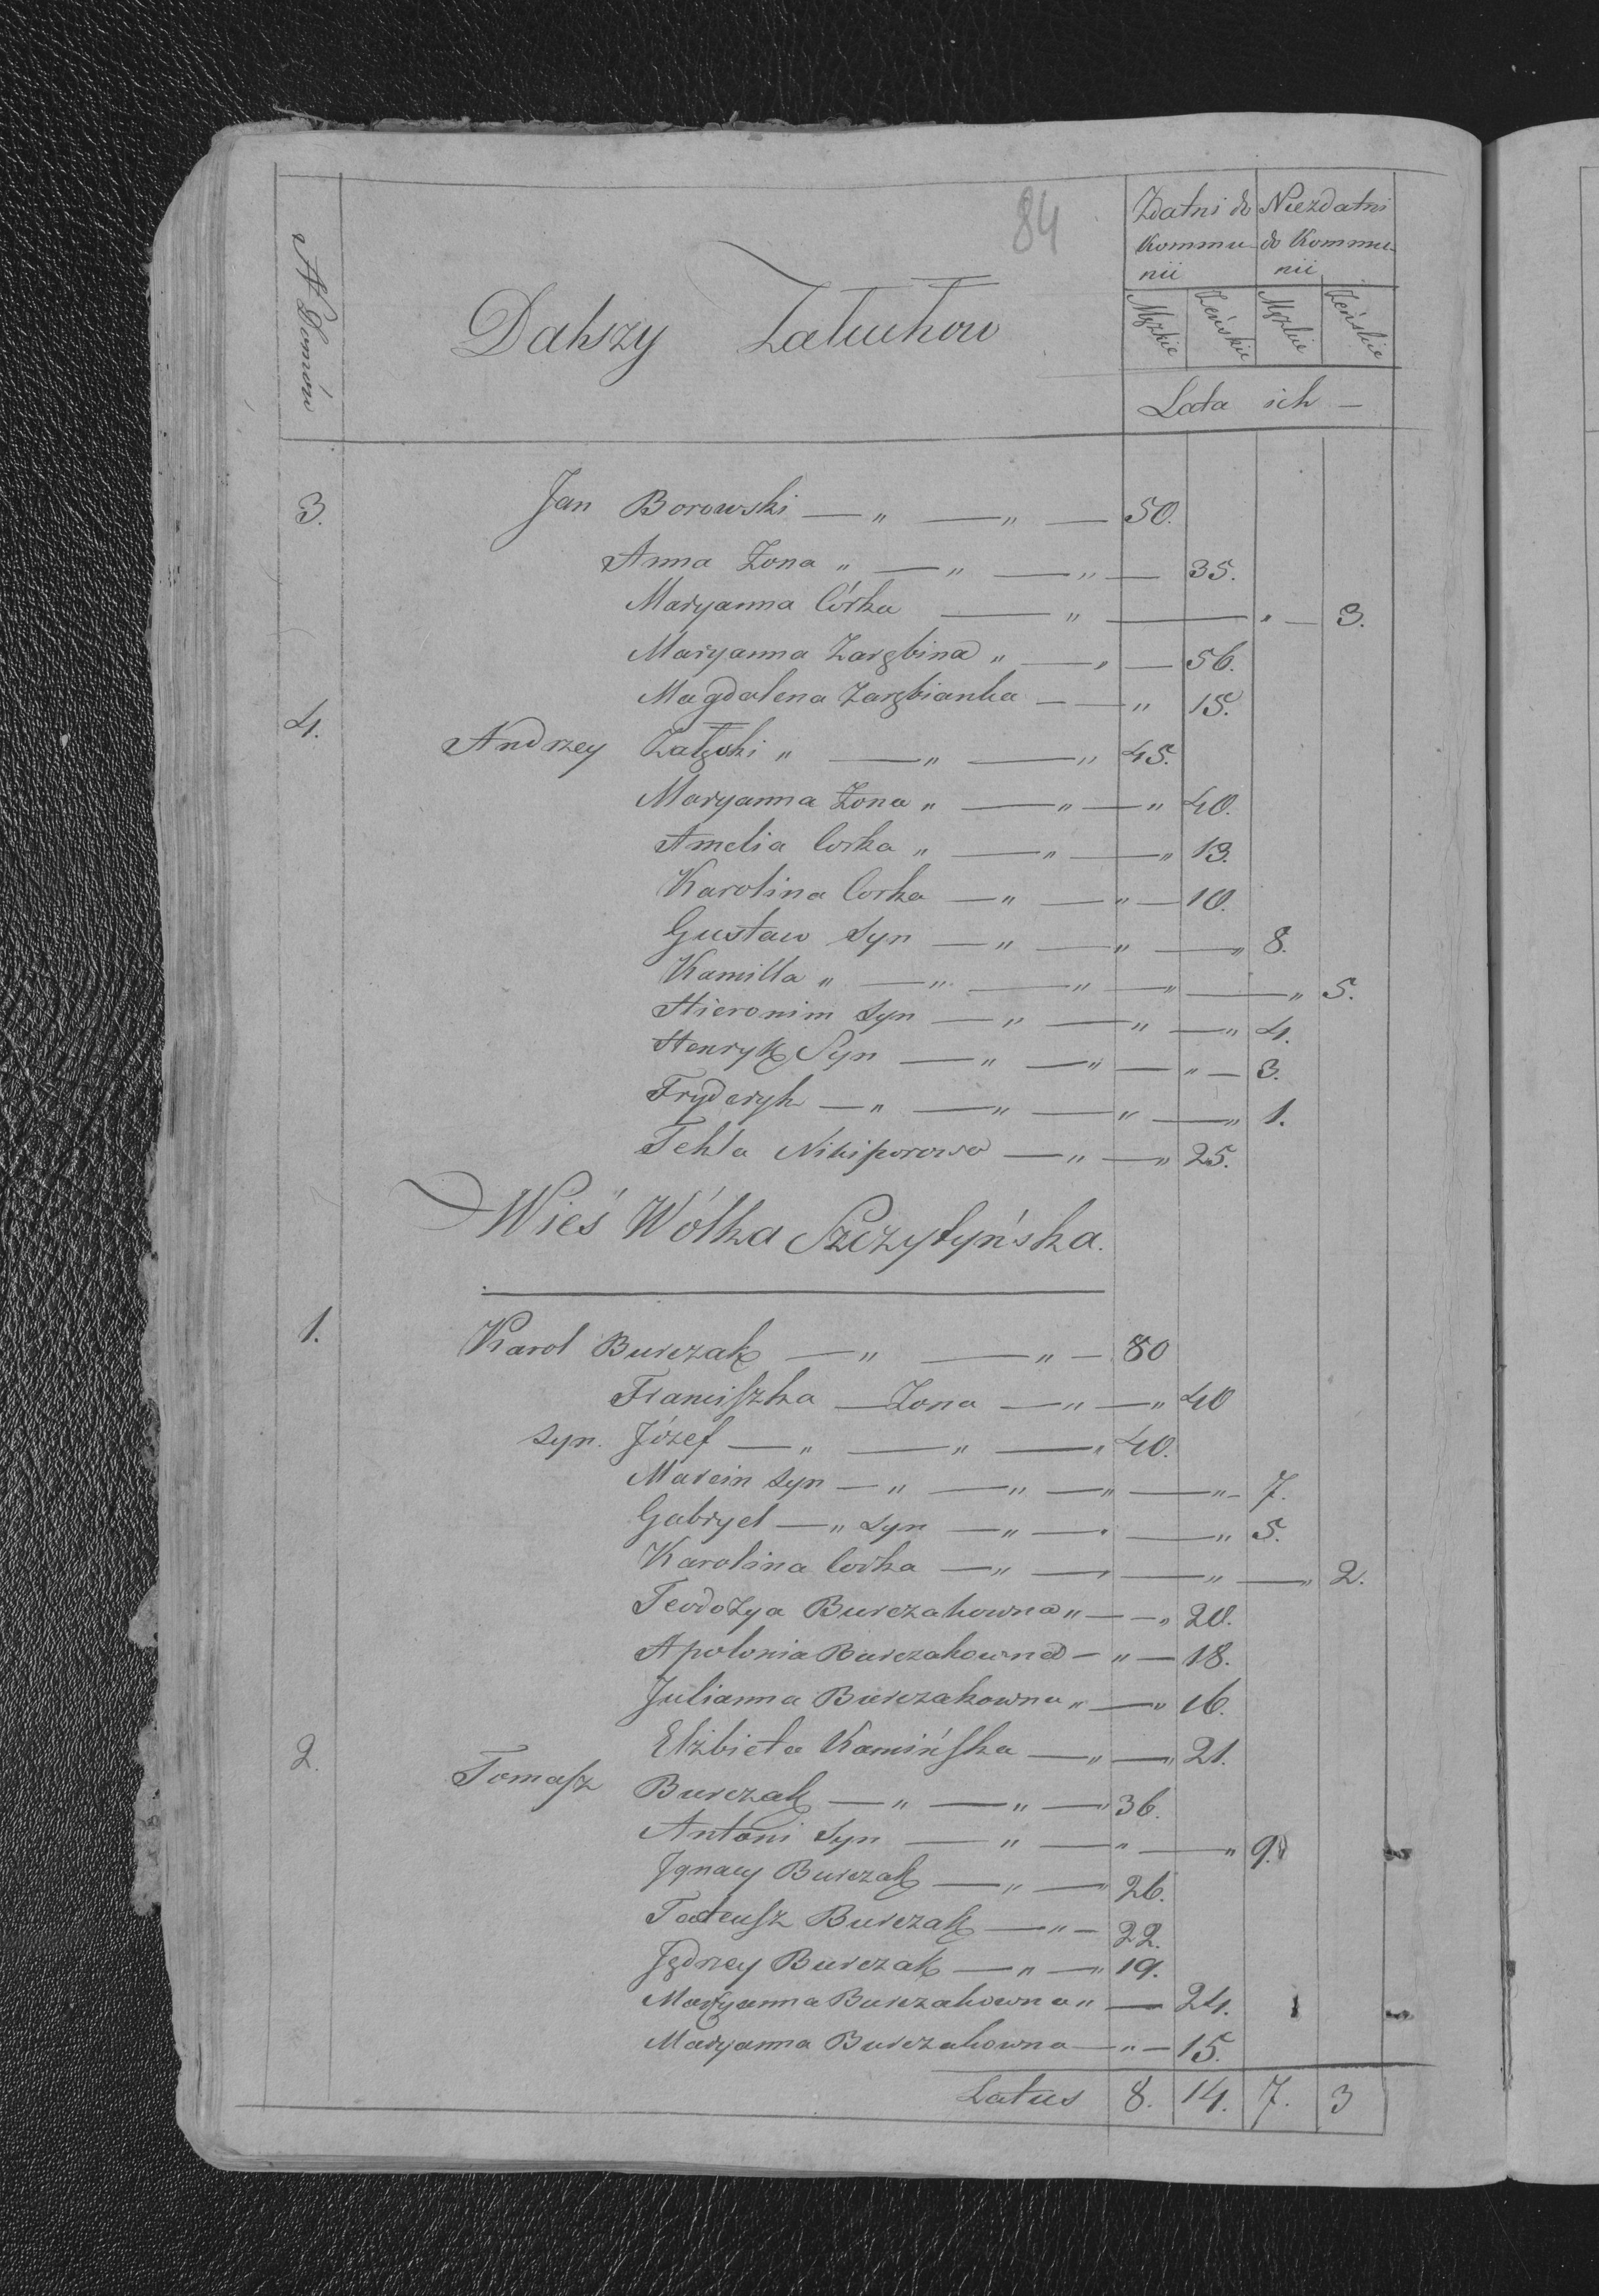 84
N Domów
Dalszy Załuchow
Zdatni do Kommunii
Niezdatni do Kommunii
Męzkie Żeńskie Męzkie Żeńskie
Lata ich —
3. Jan Borowski — " — " — 50.
Anna Żona " — " — " — 35.
Maryanna Córka — " — " — 3.
Maryanna Zarębina " — " — 56.
Magdalena Zarębianka — — " 15.
4. Andrzey Załęski " — " — " 45.
Maryanna Żona " — " — " 40.
Amelia Corka " — " — " 13.
Karolina Corka — " — " — 10.
Gustaw Syn — " — " — " 8.
Kamilla " — " — " — " — " 5.
Hieronim Syn — " — " — " 4.
Henryk Syn — " — " — " — 3.
Fryderyk — " — " — " — " 1.
Tekla Nikiporowa — " — " 25.
Wieś Wólka Szczytyńska.
1. Karol Burczak — " — " — 80
Franciszka — Żona — " — " 40
Syn. Józef — " — " — " 40.
Marcin Syn — " — " — " — " — 7.
Gabryel — " Syn — " — " — " 5.
Karolina Corka — " — " — " — " 2.
Teodozya Burczakowna " — — " 20.
Apolonia Burczakowna — " — 18.
Julianna Burczakowna " — " 16.
Elżbieta Kamińska — " — " 21.
2. Tomasz Burczak — " — " — " 36.
Antoni Syn — " — " — " 9.
Ignacy Burczak — " — " 26.
Tadeusz Burczak — " — 22.
Jędrzey Burczak — " — " 19.
Maryanna Burczakowna " — 24.
Maryanna Burczakowna — " — 15.
Latus 8. 14. 7. 3